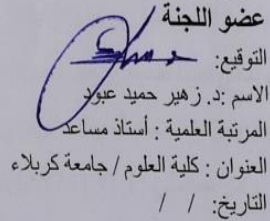 عضو اللجنة
التوقيع:
الاسم :د. زهير حميد عبود
المرتبة العلمية : أستاذ مساعد
العنوان : كلية العلوم / جامعة كربلاء
التاريخ: / /